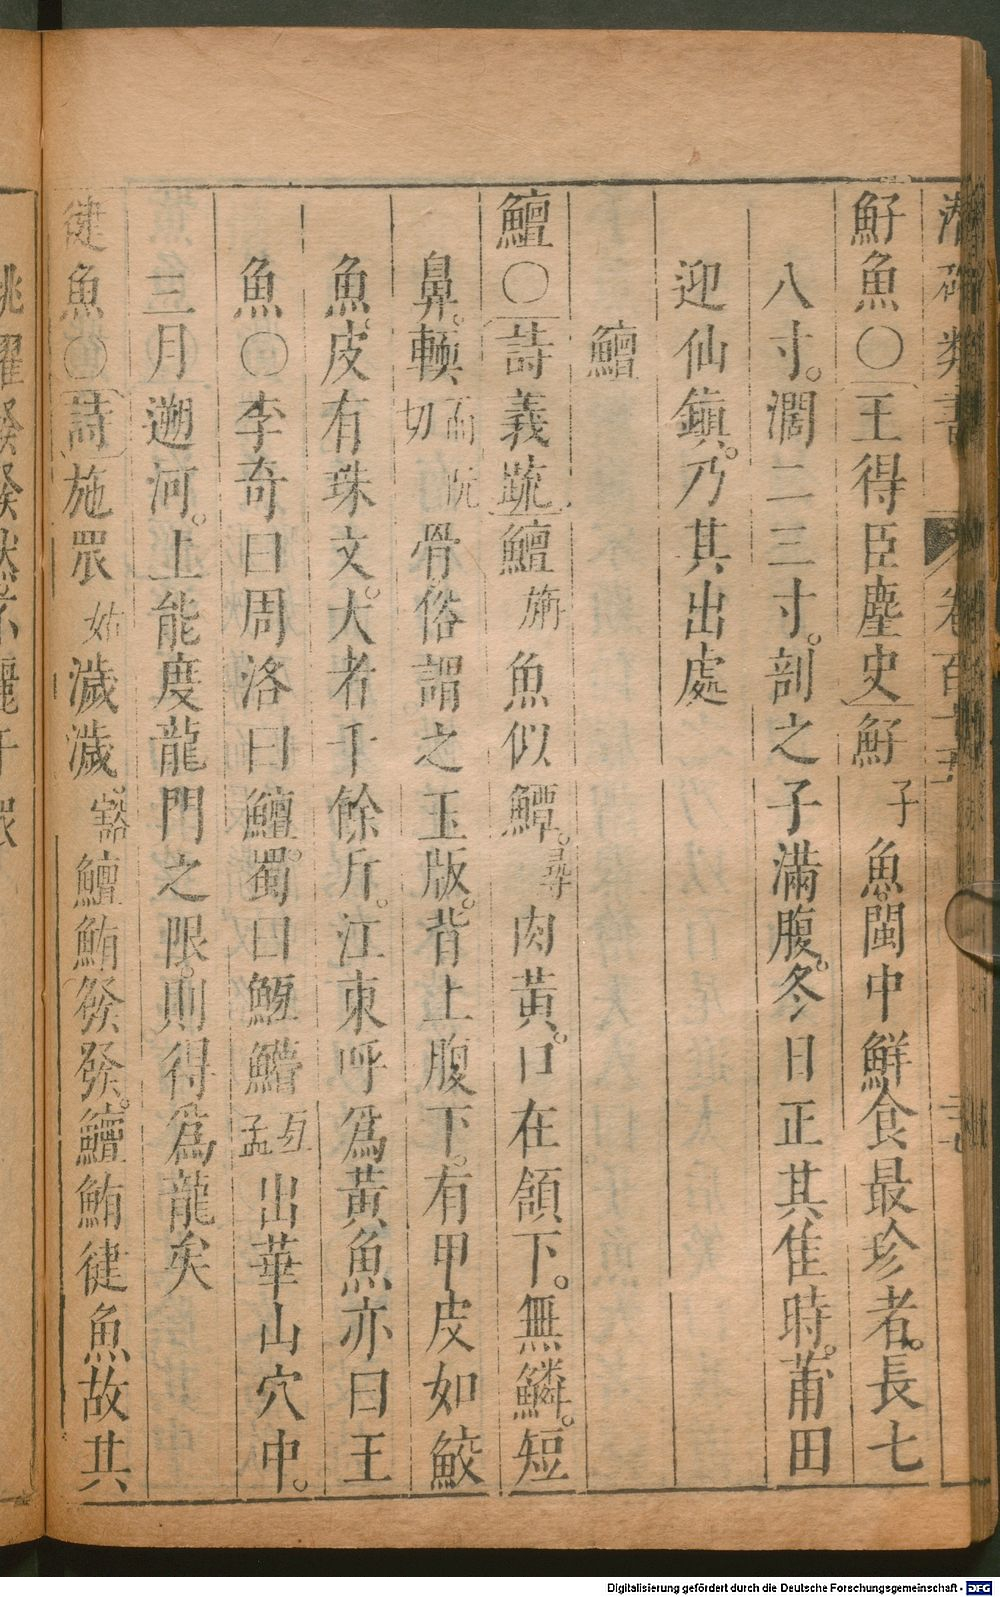 潛確類書 卷百十五
魣魚○王得臣麈史魣子魚閩中鮮食最珍者。長七
八寸。濶二三寸。剖之子滿腹。冬日正其佳時。莆田
迎仙鎮。乃其出處
鱣
鱣○詩義疏鱣旃魚似鱏。尋肉黃。口在頷下。無鱗。短
鼻。輭而阮切骨俗謂之玉版。背上腹下。有甲皮如鮫
魚。皮有珠文。大者千餘斤。江東呼爲黃魚亦曰王
魚○李奇曰周洛曰鱣。蜀曰䱍䲛亙孟出華山穴中。
三月遡河。上能度龍門之限。則得爲龍矣
徤魚○詩施罛姑濊濊豁鱣鮪發發。鱣鮪徤魚故共
跳躍發發然
Digitalisierung gefördert durch die Deutsche Forschungsgemeinschaft - DFG